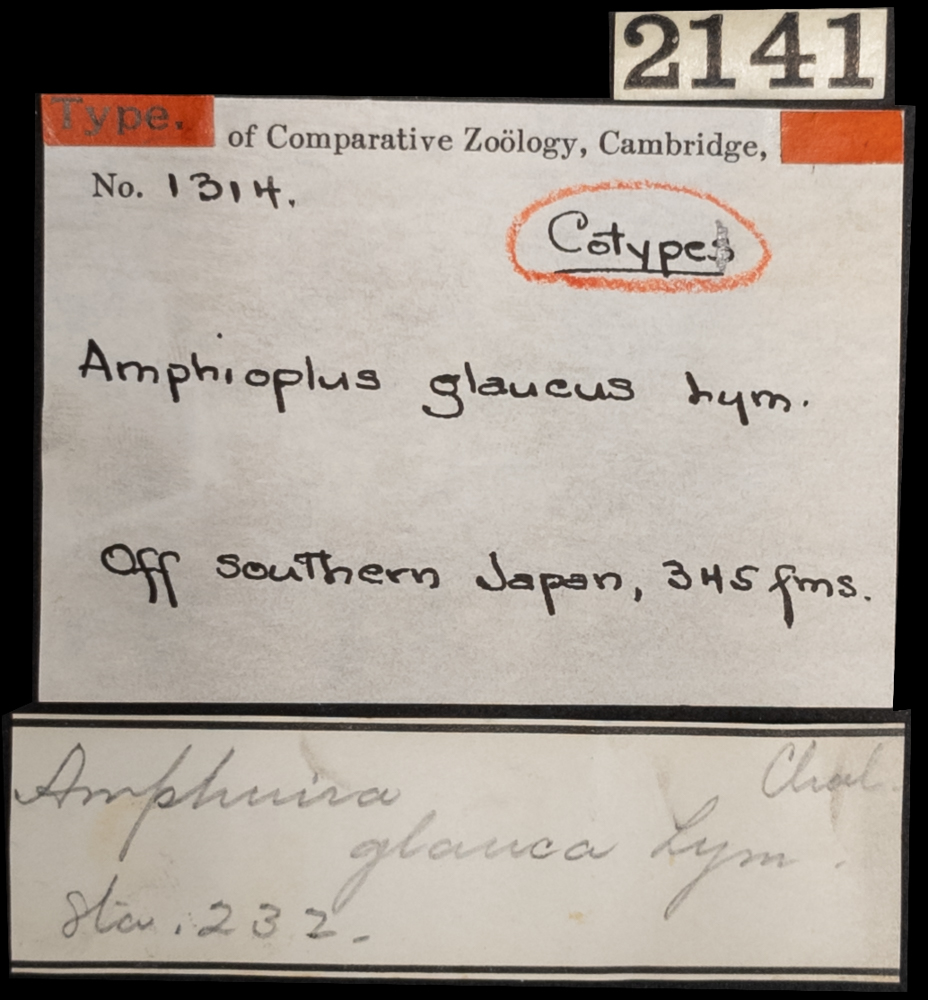 2141
Type.
of Comparative Zoölogy, Cambridge,
No. 1314.
Cotypes
Amphioplus glaucus Lym.
Off southern Japan, 345 fms.
Amphiura Chal.
glauca Lym.
Sta. 232.